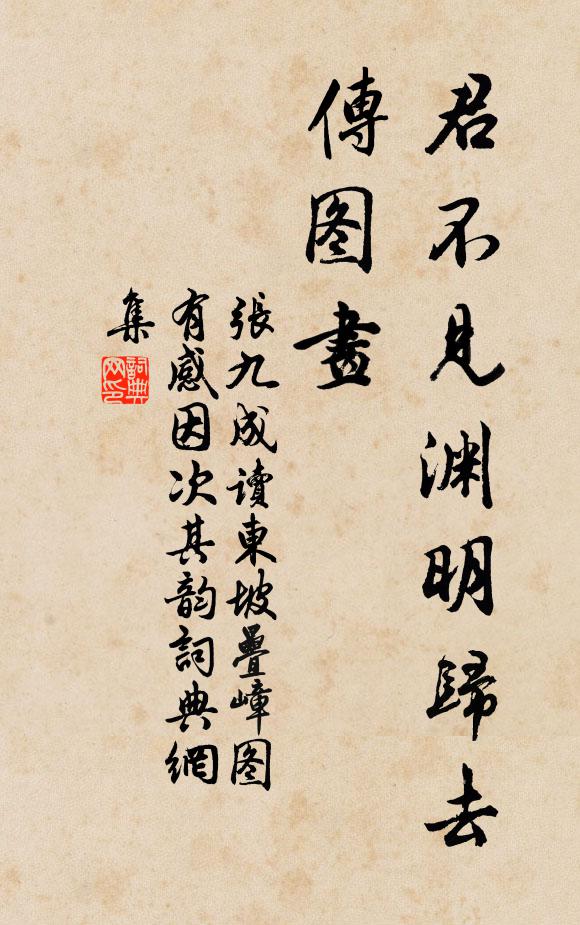 君不见渊明歸去
傳图畫
張九成讀東坡疊嶂图
有感因次其韵詞典網
集
詞典
网印